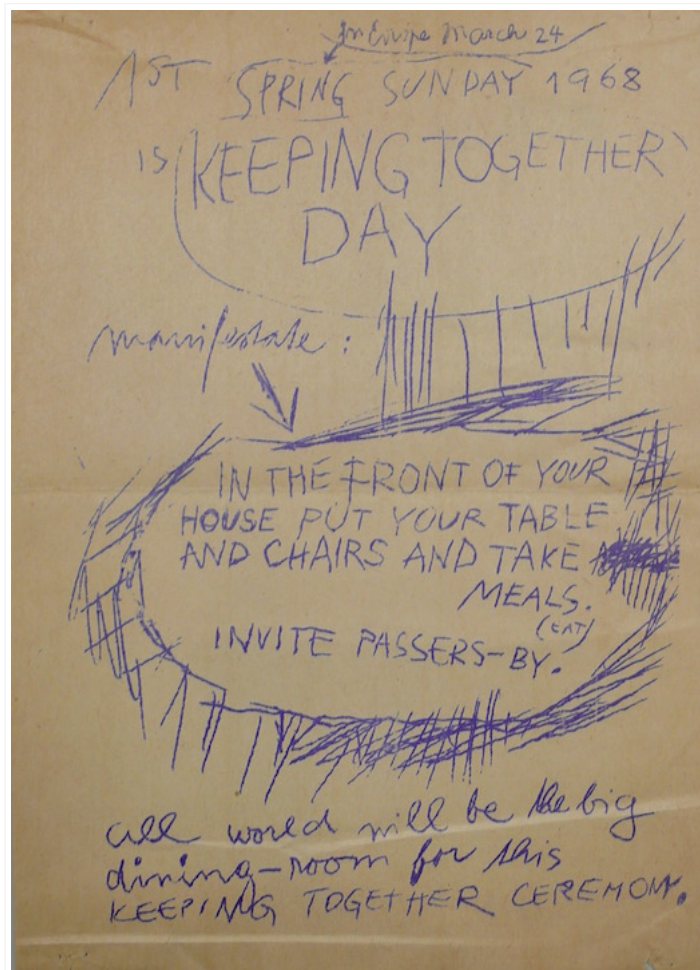 In Europe March 24
1ST SPRING SUNDAY 1968
IS KEEPING TOGETHER
DAY
manifestate:
IN THE FRONT OF YOUR
HOUSE PUT YOUR TABLE
AND CHAIRS AND TAKE
MEALS.
(EAT)
INVITE PASSERS-BY.
all world will be the big
dining-room for this
KEEPING TOGETHER CEREMONY.